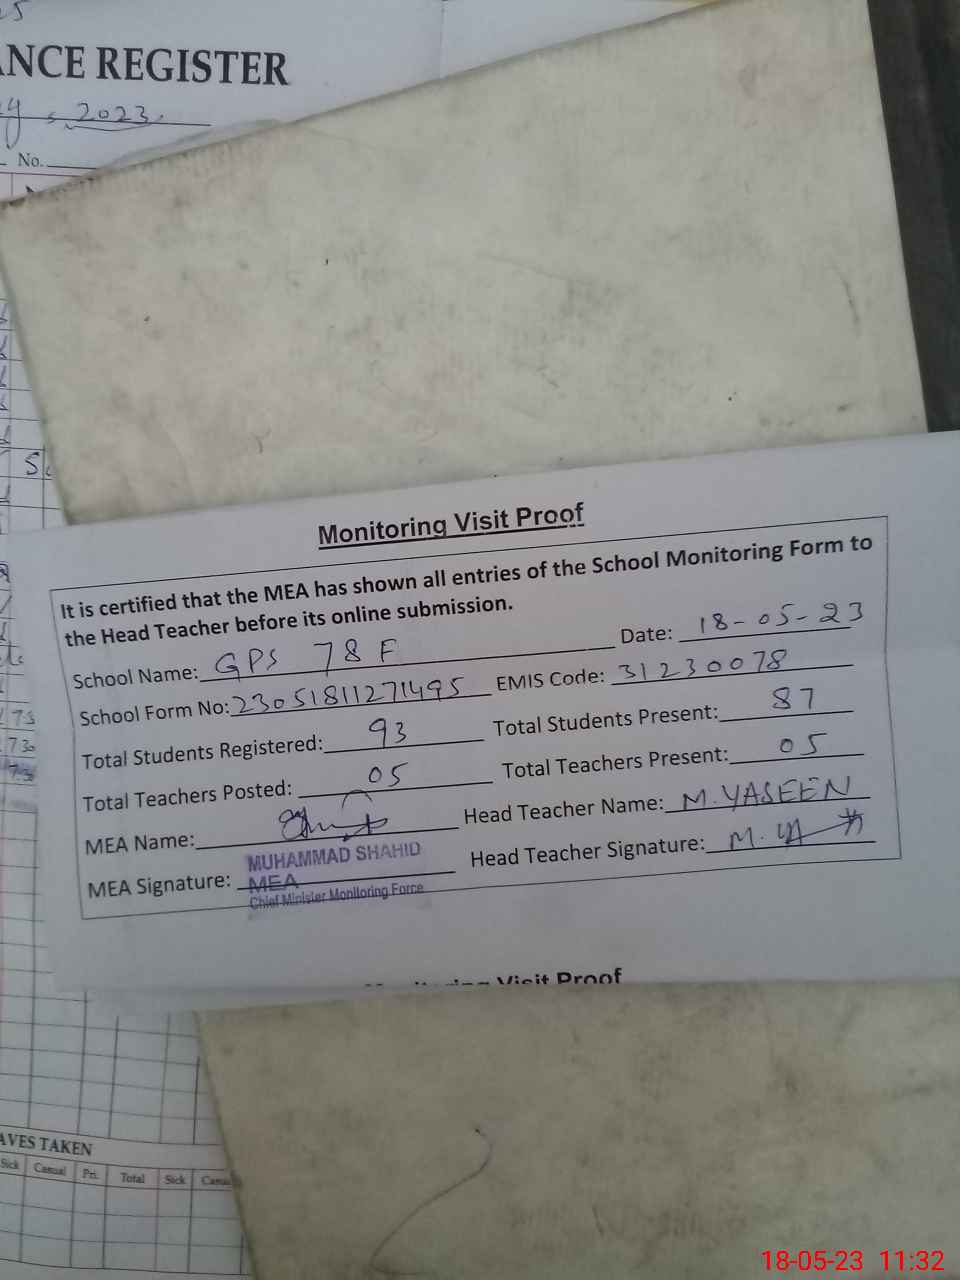 NCE REGISTER
y, 2023.
No.
Monitoring Visit Proof
It is certified that the MEA has shown all entries of the School Monitoring Form to
the Head Teacher before its online submission.
School Name: GPS 78 F Date: 18-05-23
School Form No: 23051811271495 EMIS Code: 31230078
Total Students Registered: 93 Total Students Present: 87
Total Teachers Posted: 05 Total Teachers Present: 05
MEA Name: Head Teacher Name: M.YASEEN
MUHAMMAD SHAHID
MEA Signature: MEA Head Teacher Signature: M. YA
Chief Minister Monitoring Force
Visit Proof
AVES TAKEN
Sick Casual Pri. Total Sick Casu
18-05-23 11:32